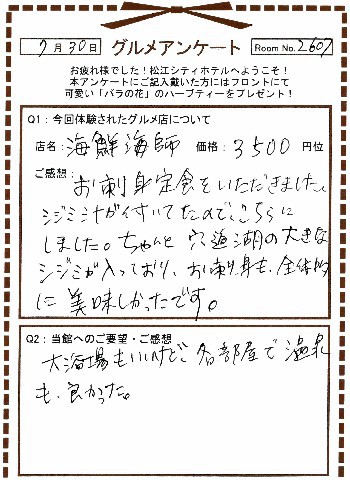 7月30日 グルメアンケート Room No.2607
お疲れ様でした！松江シティホテルへようこそ！
本アンケートにご記入戴いた方にはフロントにて
可愛い「バラの花」のハーブティーをプレゼント！
Q1：今回体験されたグルメ店について
店名：海鮮海師 価格：3500円位
ご感想：お刺身定食をいただきました。
シジミ汁が付いてたので、こちらに
しました。ちゃんと宍道湖の大きな
シジミが入っており、お刺身も、全体的
に美味しかったです。
Q2：当館へのご要望・ご感想
大浴場もいいけど、各部屋で温泉
も、良かった。